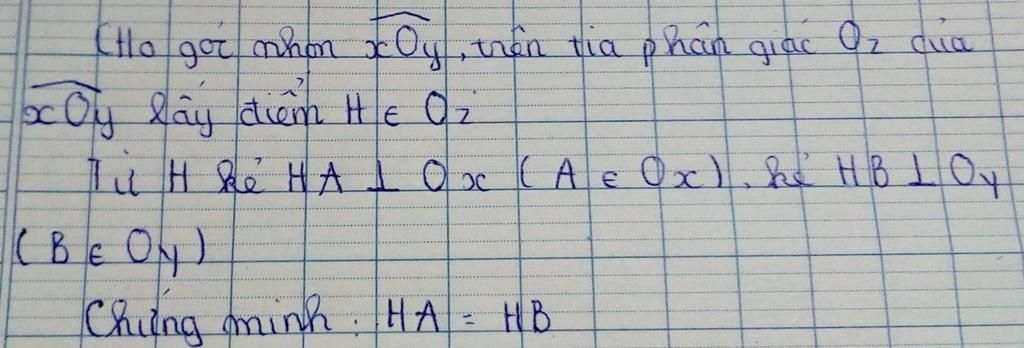 Cho góc nhọn xOy, trên tia phân giác Oz của
xOy lấy điểm H ∈ Oz
Từ H kẻ HA ⊥ Ox (A ∈ Ox), kẻ HB ⊥ Oy
(B ∈ Oy)
Chứng minh: HA = HB